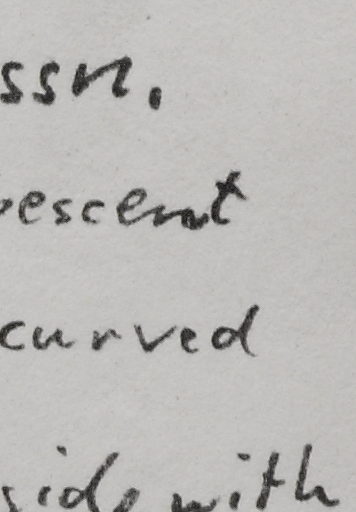 ssn.
escent
curved
side with